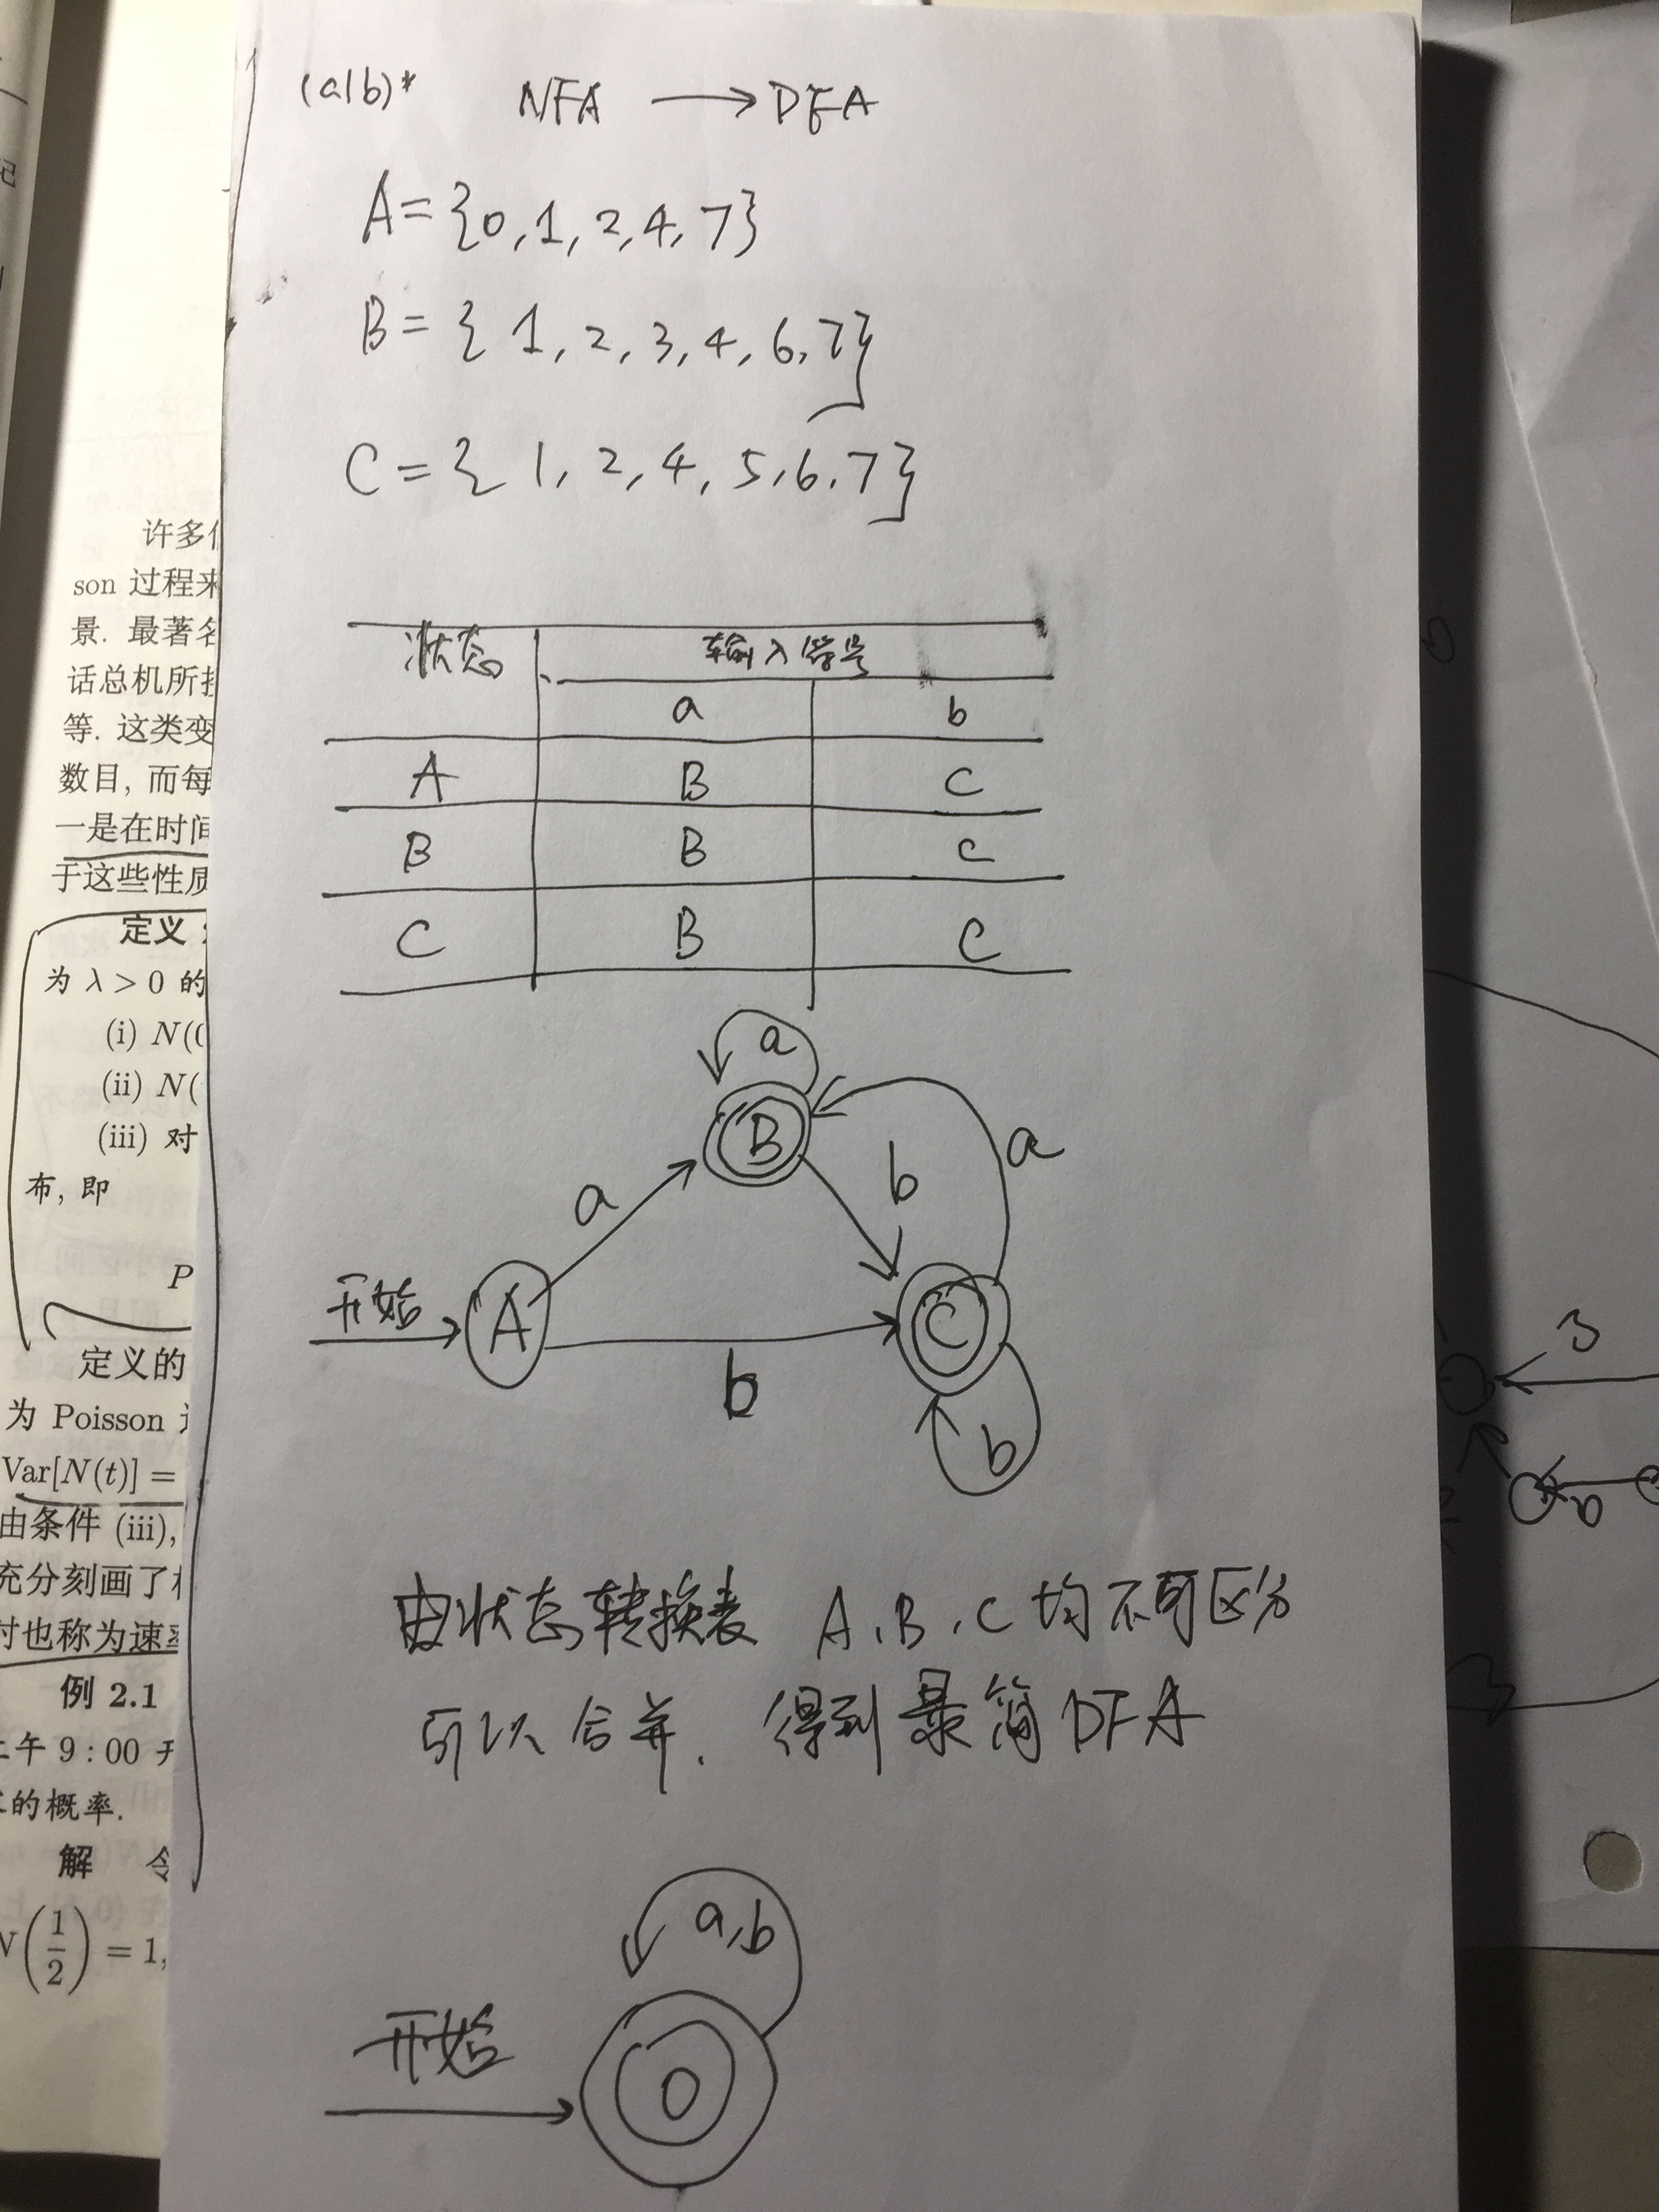 (a|b)* NFA → DFA
A = {0, 1, 2, 4, 7}
B = { 1, 2, 3, 4, 6, 7}
C = { 1, 2, 4, 5, 6, 7}
状态 输入符号
a b
A B C
B B C
C B C
a
B
a b a
开始 A C
b
b
由状态转换表 A、B、C 均不可区分
可以合并. 得到最简DFA
a,b
开始
0
许多
son 过程来
景. 最著名
话总机所
等. 这类变
数目, 而每
一是在时间
于这些性质
定义
为 λ > 0 的
(i) N(
(ii) N(
(iii) 对
布, 即
P
定义的
为 Poisson
Var[N(t)] =
由条件 (iii),
充分刻画了
时也称为速率
例 2.1
上午 9 : 00 开
的概率.
解 令
N(1/2) = 1,
3